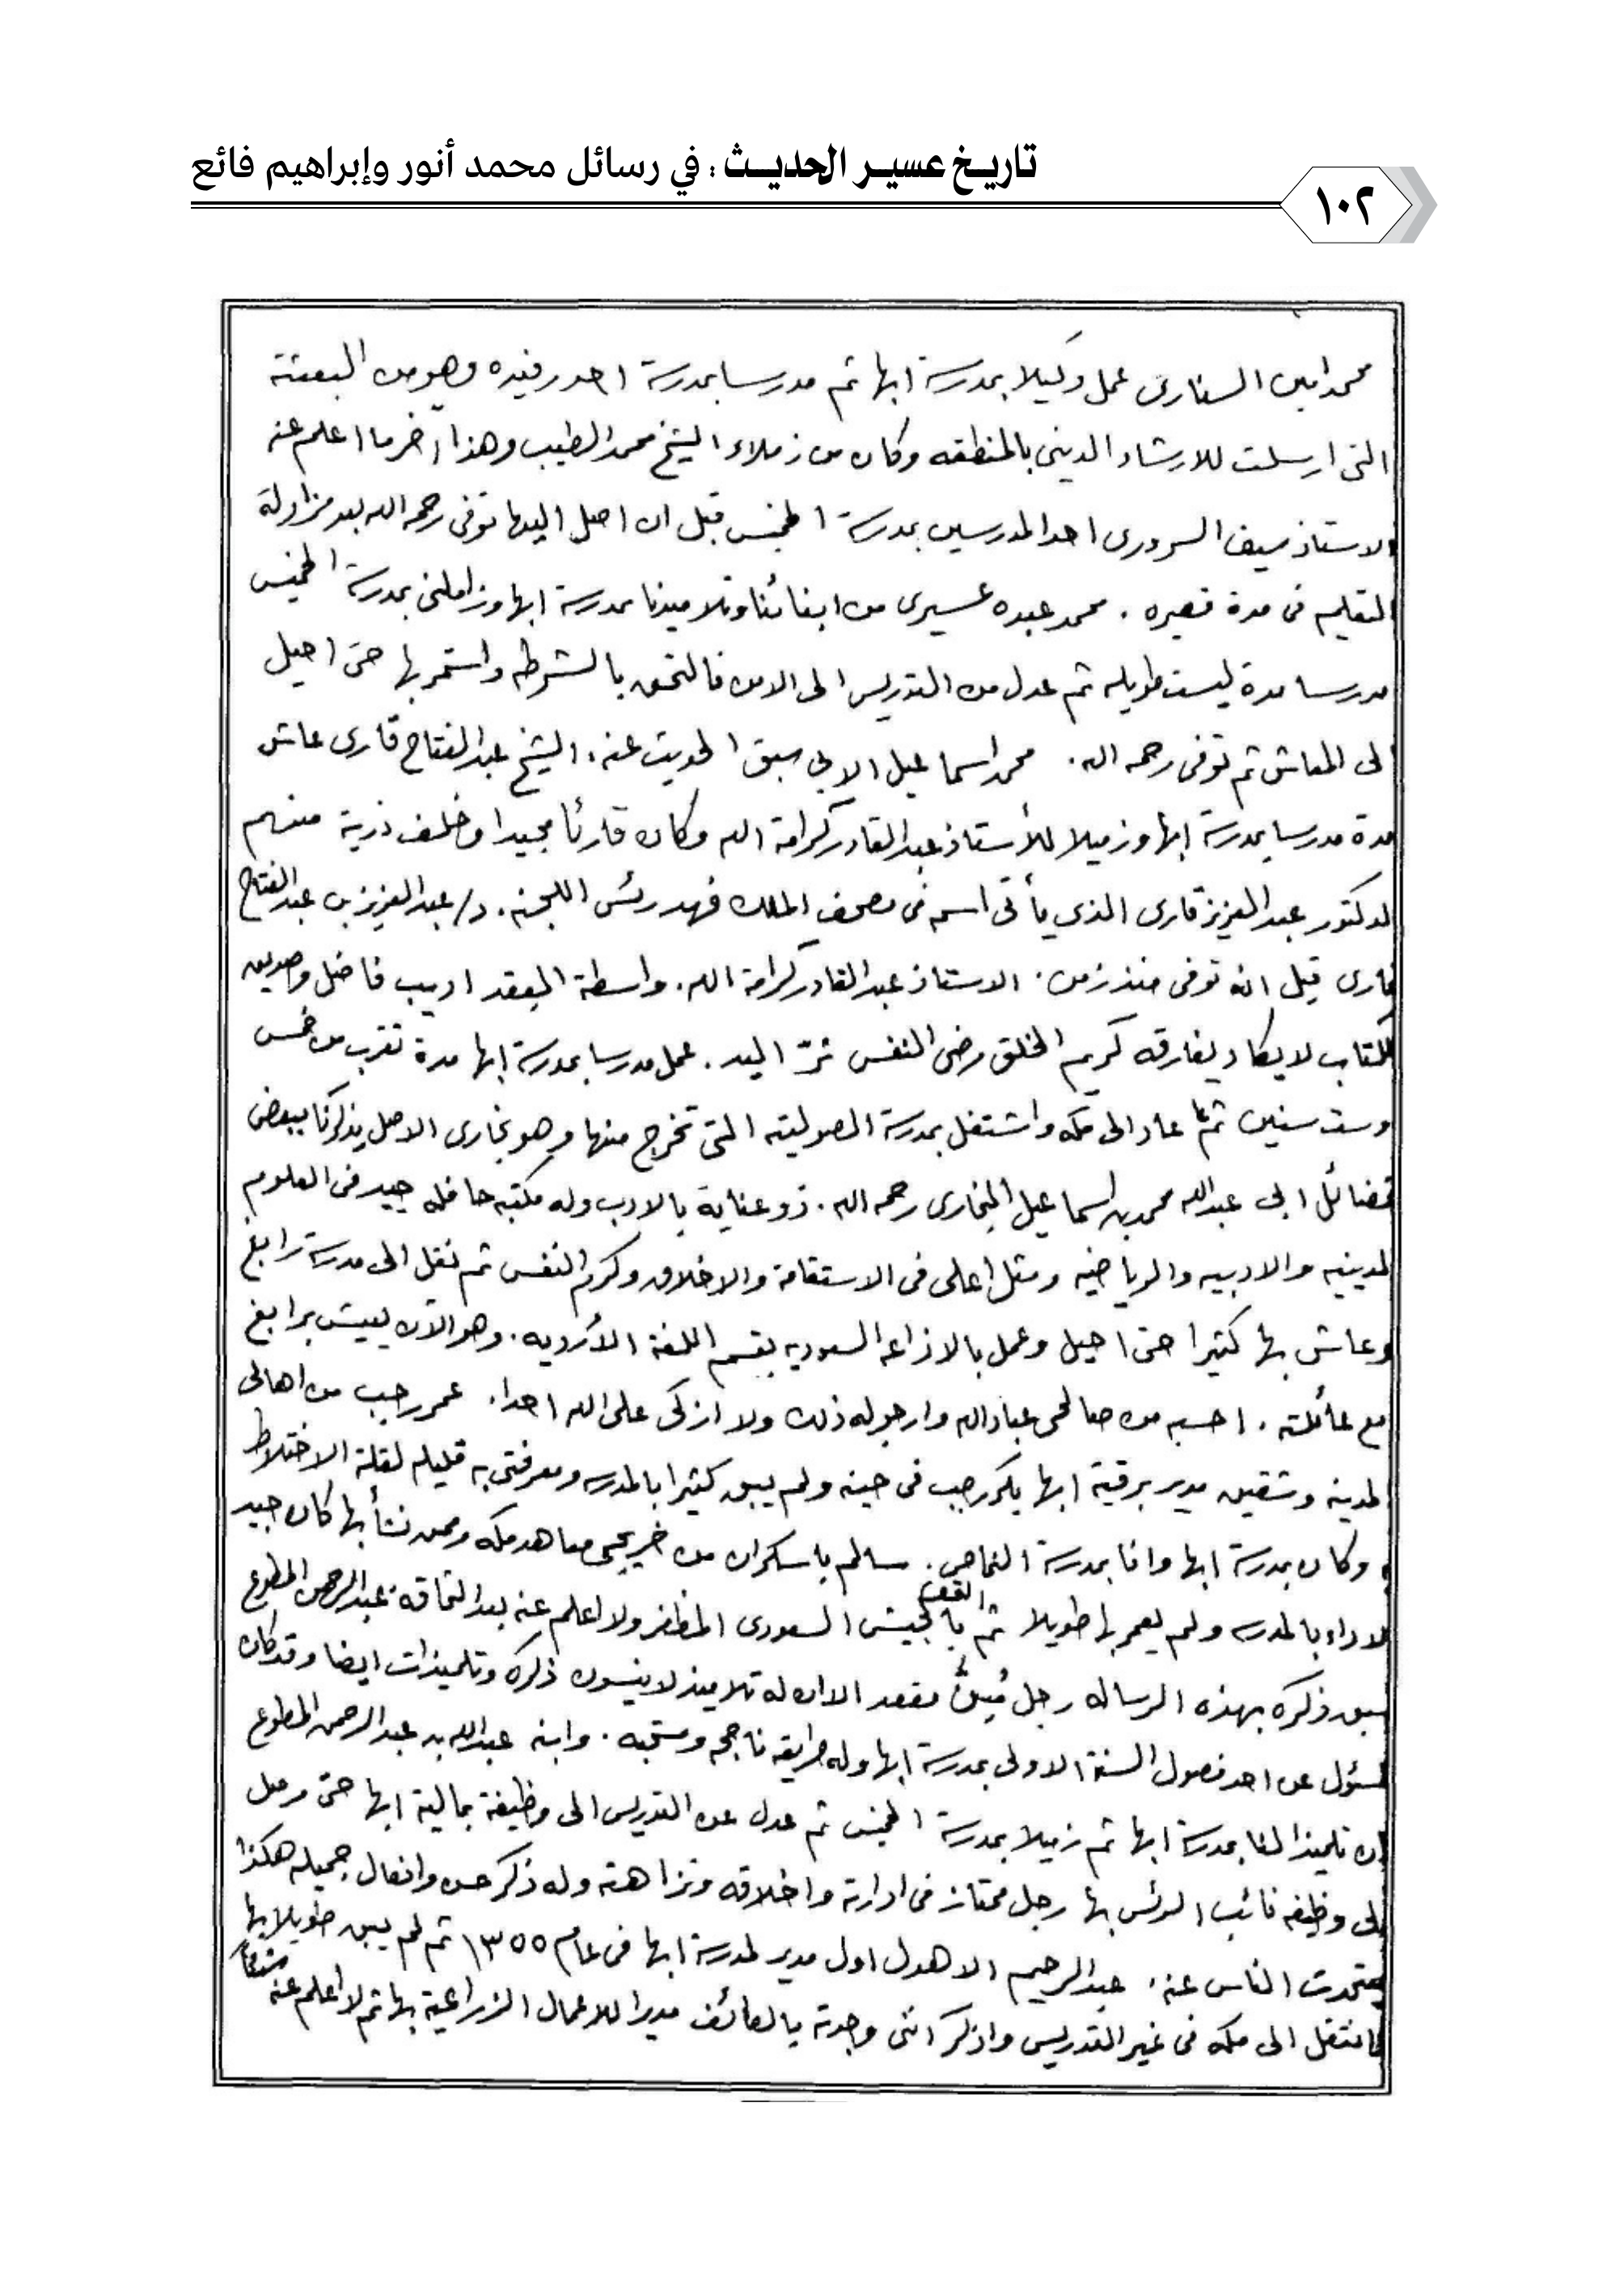 تاريخ عسير الحديث : في رسائل محمد أنور وإبراهيم فائع
١٠٢
محمد امين السنارى عمل وكيلا بمدرسة ابها ثم مدرسا بمدرسة احد رفيده وهو من البعثة
التى ارسلت للارشاد الدينى بالمنطقه وكان من زملاء الشيخ محمد الطيب وهذا آخر ما اعلم عنه
الاستاذ سيف السرورى احد المدرسين بمدرسة الخميس قبل ان اصل اليها توفى رحمه الله بعد مزاولة
التعليم فى مدة قصيره . محمد عبده عسيرى من ابنائنا وتلاميذنا بمدرسة ابها وزاملنى بمدرسة الخميس
مدرسا مدة ليست طويله ثم عدل من التدريس الى الامن فالتحق بالشرطه واستمر بها حتى احيل
الى المعاش ثم توفى رحمه الله . محمد اسماعيل الابى سبق الحديث عنه . الشيخ عبدالفتاح قارى عاش
مدة مدرسا بمدرسة ابها وزميلا للأستاذ عبدالقادر كرامة الله وكان قارئا مجيدا وخلف ذرية منهم
الدكتور عبدالعزيز قارى الذى يأتى اسمه فى مصحف الملك فهد رئس اللجنه . د/ عبدالعزيز بن عبدالفتاح
قارى قيل انه توفى منذ زمن . الاستاذ عبدالقادر كرامة الله . واسطة العقد اديب فاضل وصديق
للكتاب لا يكاد يفارقه كريم الخلق رضى النفس ثرّ اليد . عمل مدرسا بمدرسة ابها مدة تقرب من خمس
وست سنين ثم عاد الى مكه واشتغل بمدرسة الصولتيه التى تخرج منها وهو بخارى الاصل يذكرنا ببعض
فضائل ابى عبدالله محمد بن اسماعيل البخارى رحمه الله . ذو عناية بالادب وله مكتبه حافله جيد فى العلوم
الدينيه والادبيه والرياضيه ومثل اعلى فى الاستقامة والاخلاق وكرم النفس ثم نقل الى مدرسة رابغ
وعاش بها كثيرا حتى احيل وعمل بالاذاعه السعوديه بقسم اللغة الأرديه . وهو الآن يعيش برابغ
مع عائلته . احسبه من صالحى عبادالله وارجو له ذلك ولا ازكى على الله احدا . عمر رجب من اهالى
المدينه وشقيق مدير برقية ابها بكر رجب فى حينه ولم يبق كثيرا بالمدرسه ومعرفتى به قليله لقلة الاختلاط
وكان بمدرسة ابها وانا بمدرسة النماص . سالم باسكران من خريجى معاهد مكه وممن نشأ بها كان جيد
الاداء بالمدرسه ولم يعمر بها طويلا ثم التحق بالجيش السعودى المظفر ولا اعلم عنه بعد التحاقه . عبدالرحمن المطوع
سبق ذكره بهذه الرساله رجل مُسِنٌّ مقعد الا ان له تلاميذ لا ينسون ذكره وتلميذات ايضا وقد كان
مسؤل عن احد فصول السنة الاولى بمدرسة ابها وله طريقه ناجحه ومستحبه . وابنه عبدالله بن عبدالرحمن المطوع
كان تلميذا لنا بمدرسة ابها ثم زميلا بمدرسة الخميس ثم عدل عن التدريس الى وظيفة بمالية ابها حتى وصل
الى وظيفه نائب الرئس بها رجل ممتاز فى ادارته واخلاقه ونزاهته وله ذكر حسن وافعال جميله هكذا
يتحدث الناس عنه . عبدالرحيم الاهدل اول مدير لمدرسة ابها فى عام ١٣٥٥ ثم لم يبق طويلا بها
فانتقل الى مكه فى غير التدريس واذكر اننى وجدته بالطائف مديرا للاعمال الزراعية بها ثم لا اعلم عنه شيئا